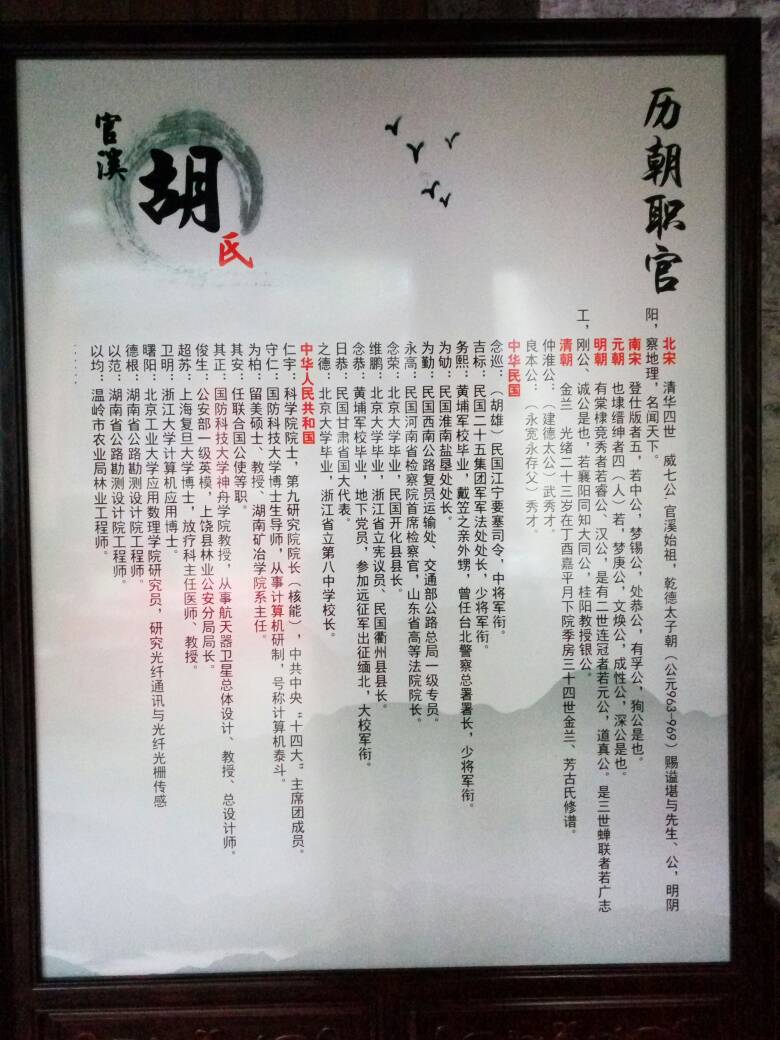 历朝职官
官溪
胡
氏
北宋 清华四世 威七公 官溪始祖，乾德太子朝（公元963-969）赐谥堪与先生、公，明阴
阳，察地理，名闻天下。
南宋 登仕版者五，若中公，梦锡公，处恭公，有孚公，狗公是也。
元朝 也埭缙绅者四（人）若，梦庚公，文焕公，成性公，深公是也。
明朝 有棠棣竞秀者若睿公、汉公，是有二世连冠者若元公，道真公。是三世蝉联者若广志
工，刚公、诚公是也，若襄阳同知大同公，桂阳教授银公。
清朝 金兰 光绪二十三岁在丁酉嘉平月下院季房三十四世金兰、芳古氏修谱。
仲淮公：（建德太公）武秀才。
良本公：（永宽永存父）秀才。
中华民国
念巡：（胡雄）民国江宁要塞司令，中将军衔。
吉标：民国二十五集团军军法处处长，少将军衔。
务熙：黄埔军校毕业，戴笠之亲外甥，曾任台北警察总署署长，少将军衔。
为勄：民国淮南盐垦处处长。
为勤：民国西南公路复员运输处、交通部公路总局一级专员。
永高：民国河南省检察院首席检察官，山东省高等法院院长。
念荣：北京大学毕业，民国开化县县长。
维鹏：北京大学毕业，浙江省立宪议员、民国衢州县县长。
念恭：黄埔军校毕业，地下党员，参加远征军出征缅北，大校军衔。
日恭：民国甘肃省国大代表。
之德：北京大学毕业，浙江省立第八中学校长。
中华人民共和国
仁宇：科学院院士，第九研究院院长（核能），中共中央“十四大”主席团成员。
守仁：国防科技大学博士生导师，从事计算机研制，号称计算机泰斗。
为柏：留美硕士、教授、湖南矿冶学院系主任。
其安：任联合国公使等职。
其正：国防科技大学神舟学院教授，从事航天器卫星总体设计、教授、总设计师。
俊生：公安部一级英模，上饶县林业公安分局局长。
超苏：上海复旦大学博士，放疗科主任医师、教授。
卫明：浙江大学计算机应用博士。
曙阳：北京工业大学应用数理学院研究员，研究光纤通讯与光纤光栅传感
德根：湖南省公路勘测设计院工程师。
以范：湖南省公路勘测设计院工程师。
以均：温岭市农业局林业工程师。
……